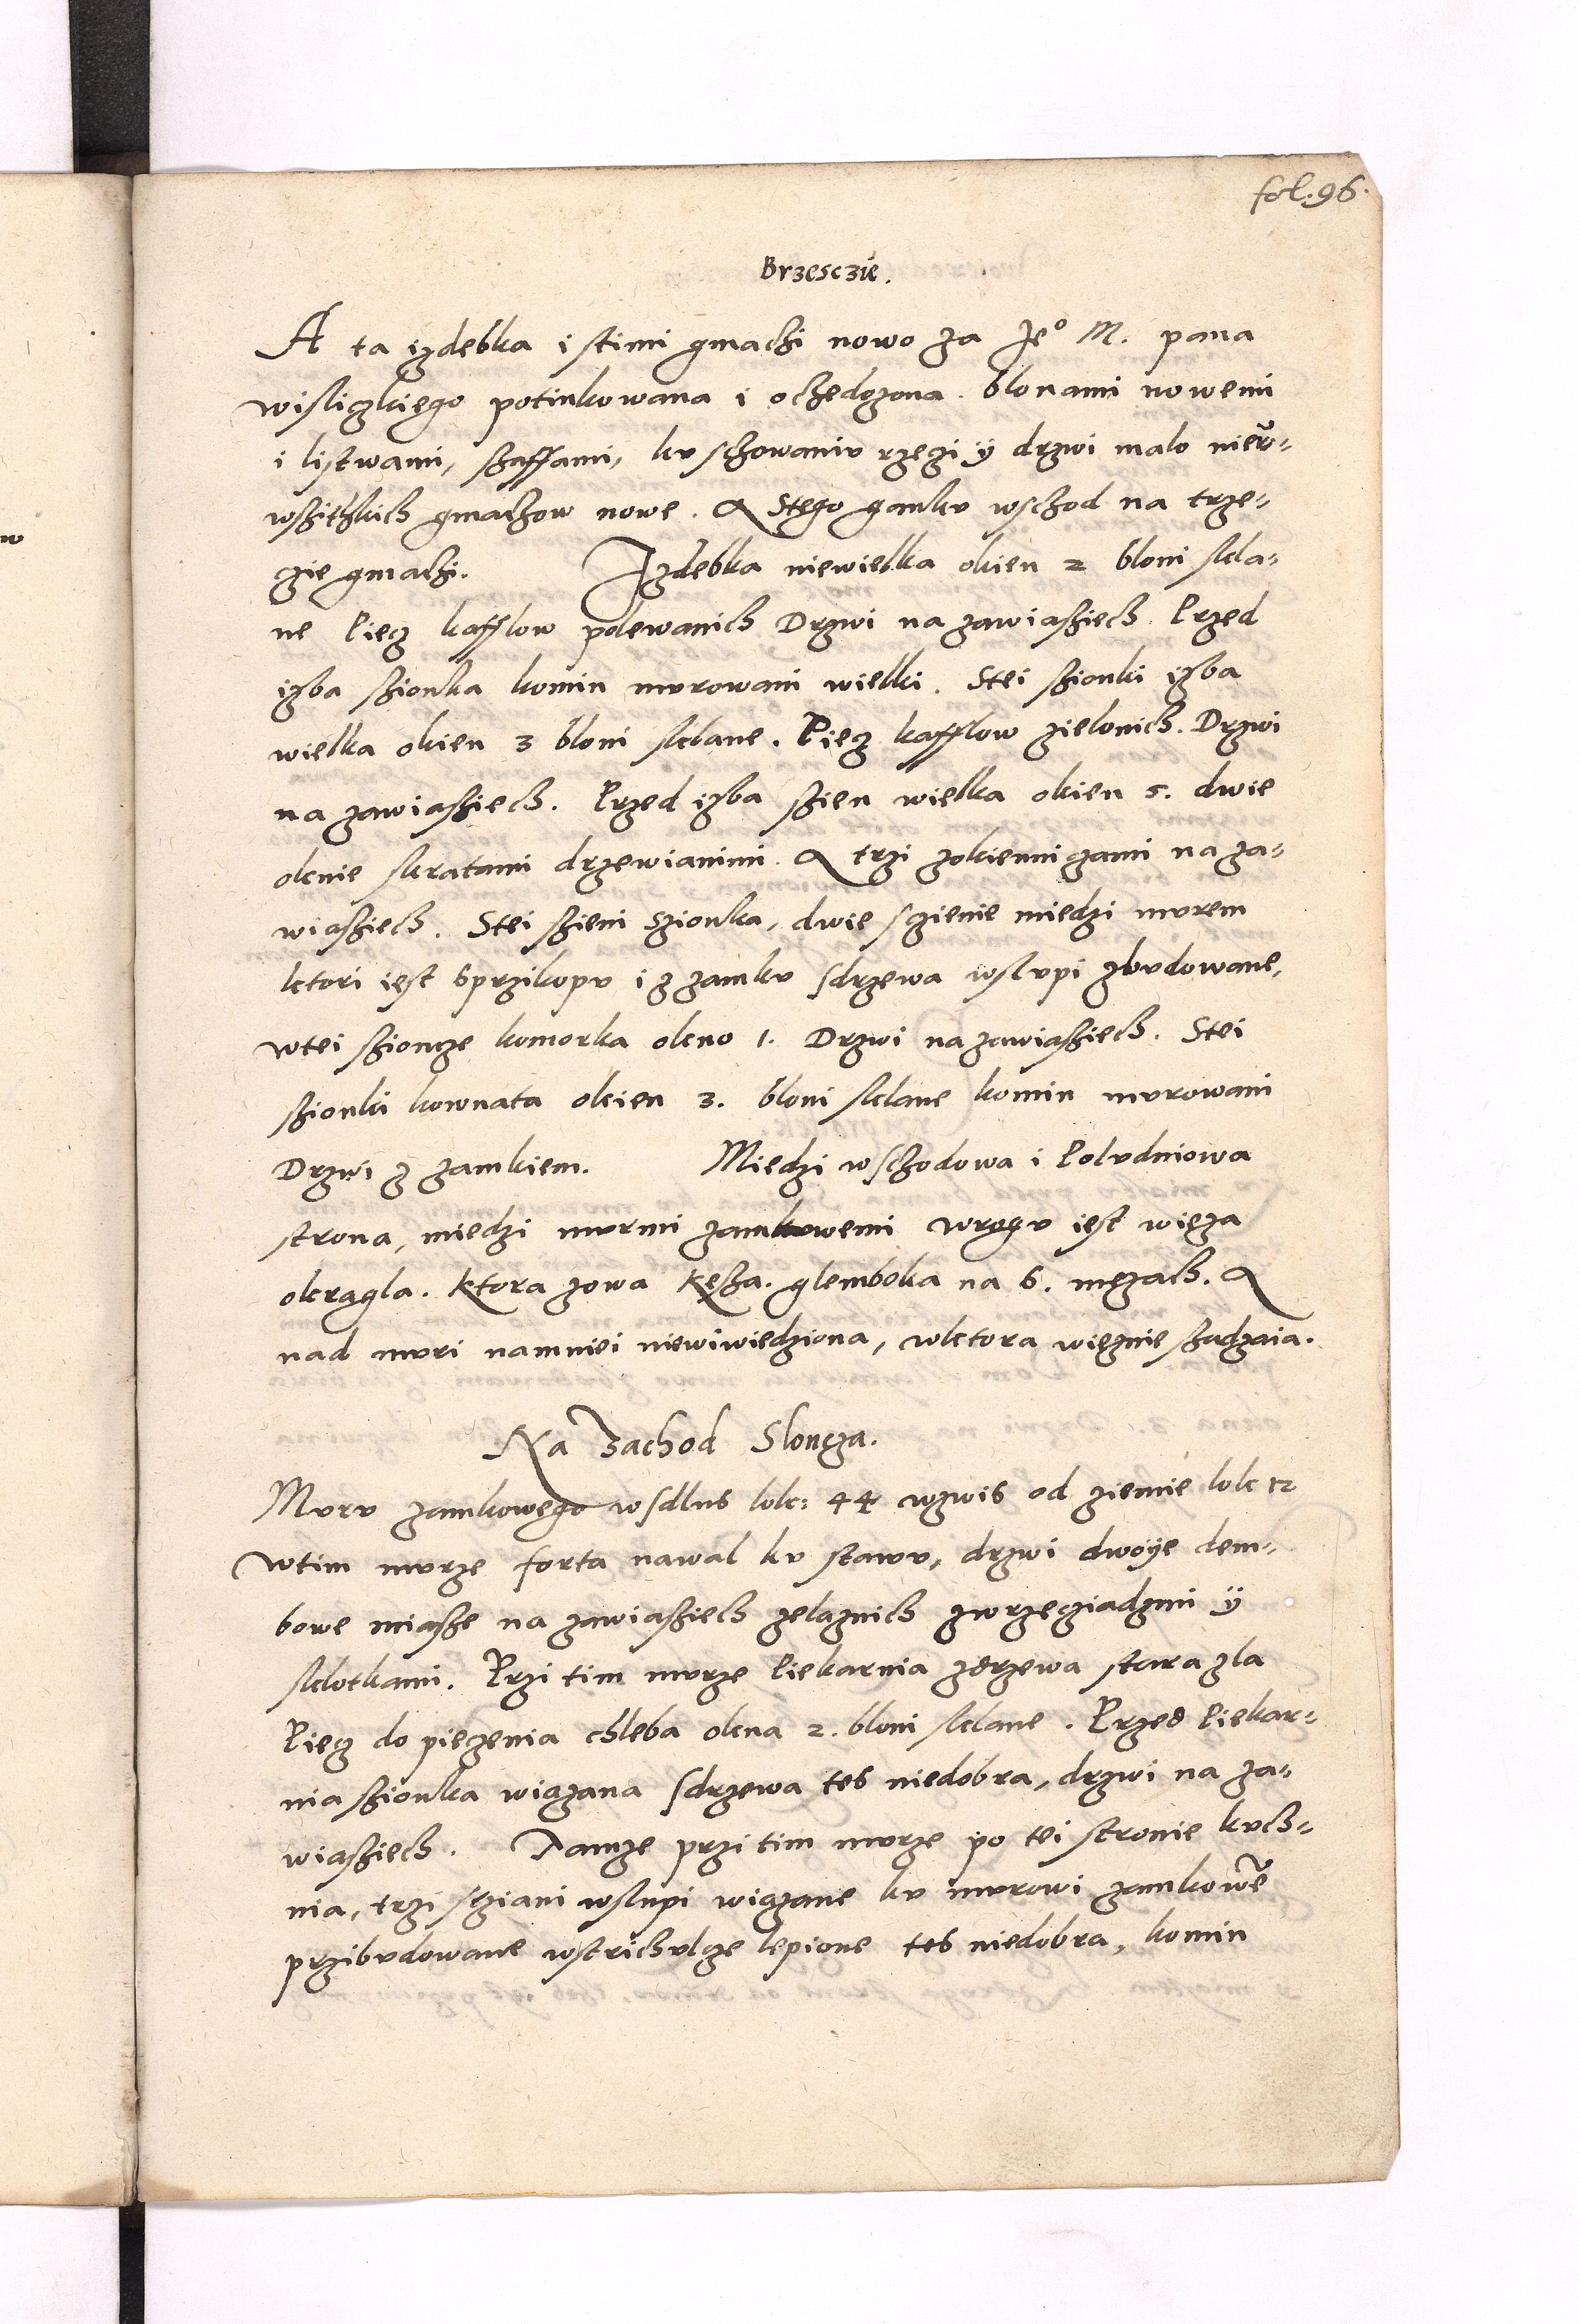 fol: 96.
Brzesczie.
A ta izdebka i stimi gmachi nowo za Jeº M. pana
wisliczkiego potinkowana i ochedozona. blonami nowemi
i listwami, szaffami, kv schowaniv rzeczi ÿ drzwi malo niew-
wszithkich gmachow nowe. A Stego gankv wschod na trze-
czie gmachi. Izdebka niewielka okien 2 bloni skla-
ne Piecz kafflow polewanich Drzwi na zawiasziech. Przed
izba szionka komin mvrowani wielki. Stei szionki izba
wielka okien 3 bloni sklane. Piecz kafflow zielonich. Drzwi
na zawiasziech. Przed izba szien wielka okien 5. dwie
oknie skratami drzewianimi. A trzi zokienniczami na za-
wiasziech. Stei szieni Szionka, dwie sczienie miedzi mvrem
ktori iest sprzikopv i z zamkv sdrzewa wslvpi zbvdowane,
wtei szioncze komorka okno 1. Drzwi na zawiasziech. Stei
szionki kownata okien 3. bloni sklane komin mvrowani
Drzwi z zamkiem. Miedzi wschodowa i Polvdniowa
strona, miedzi mvrmi zamkowemi wrogv iest wieza
okragla. Ktora zowa Kęsza. glemboka na 6. mezach. A
nad mvri namniei niewiwiedziona, wktora wieznie szadzaia.
Na Zachod Sloncza.
Mvrv zamkowego wsdlus lok: 44 wzwis od ziemie lok 12
wtim mvrze forta nawal kv stawv, drzwi dwoÿe dem-
bowe miasze na zawiasziech zelaznich zwrzecziadzmi ÿ
sklotkami. Przi tim mvrze Piekarnia zdrzewa stara zla
Piecz do pieczenia chleba okna 2. bloni sklane. Przed Piekar-
nia szionka wiazana sdrzewa tes niedobra, drzwi na za-
wiasziech. Tamze przi tim mvrze po tei stronie kvch-
nia, trzi scziani wslupi wiazane kv mvrowi zamkowe
przibvdowane wstrichvlcze lepione tes niedobra, komin